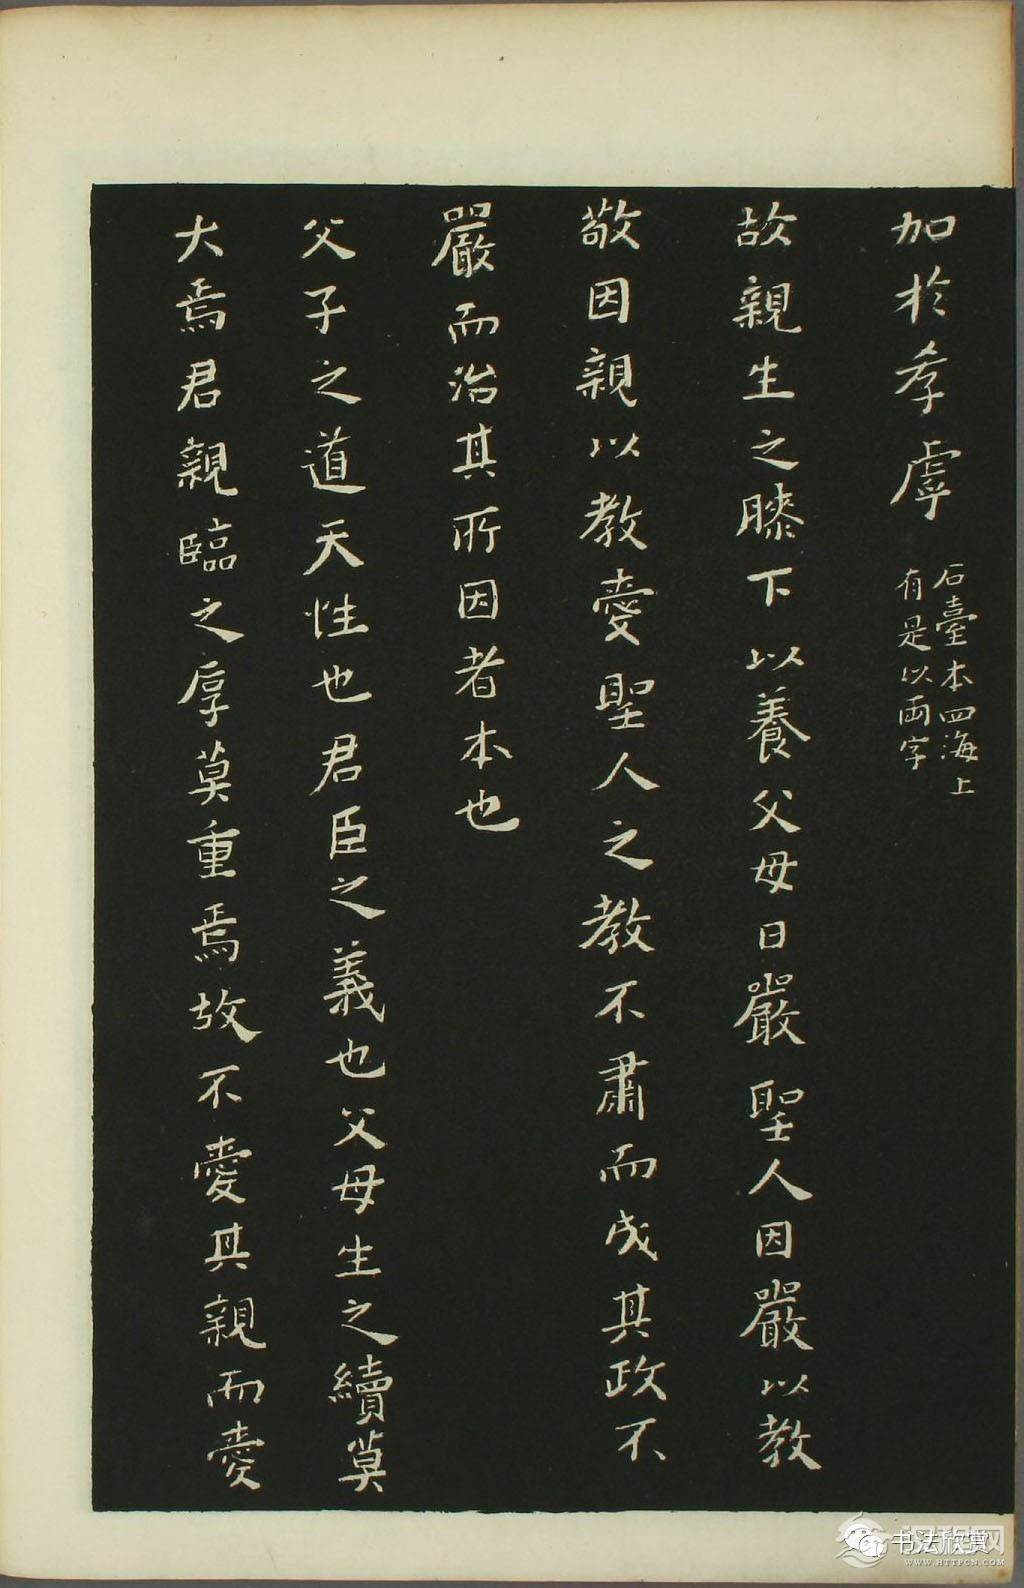 加於孝虖
石臺本四海上
有是以兩字
故親生之膝下以養父母日嚴聖人因嚴以教
敬因親以教愛聖人之教不肅而成其政不
嚴而治其所因者本也
父子之道天性也君臣之義也父母生之續莫
大焉君親臨之厚莫重焉故不愛其親而愛
书法欣赏
WWW.HTTPCN.COM